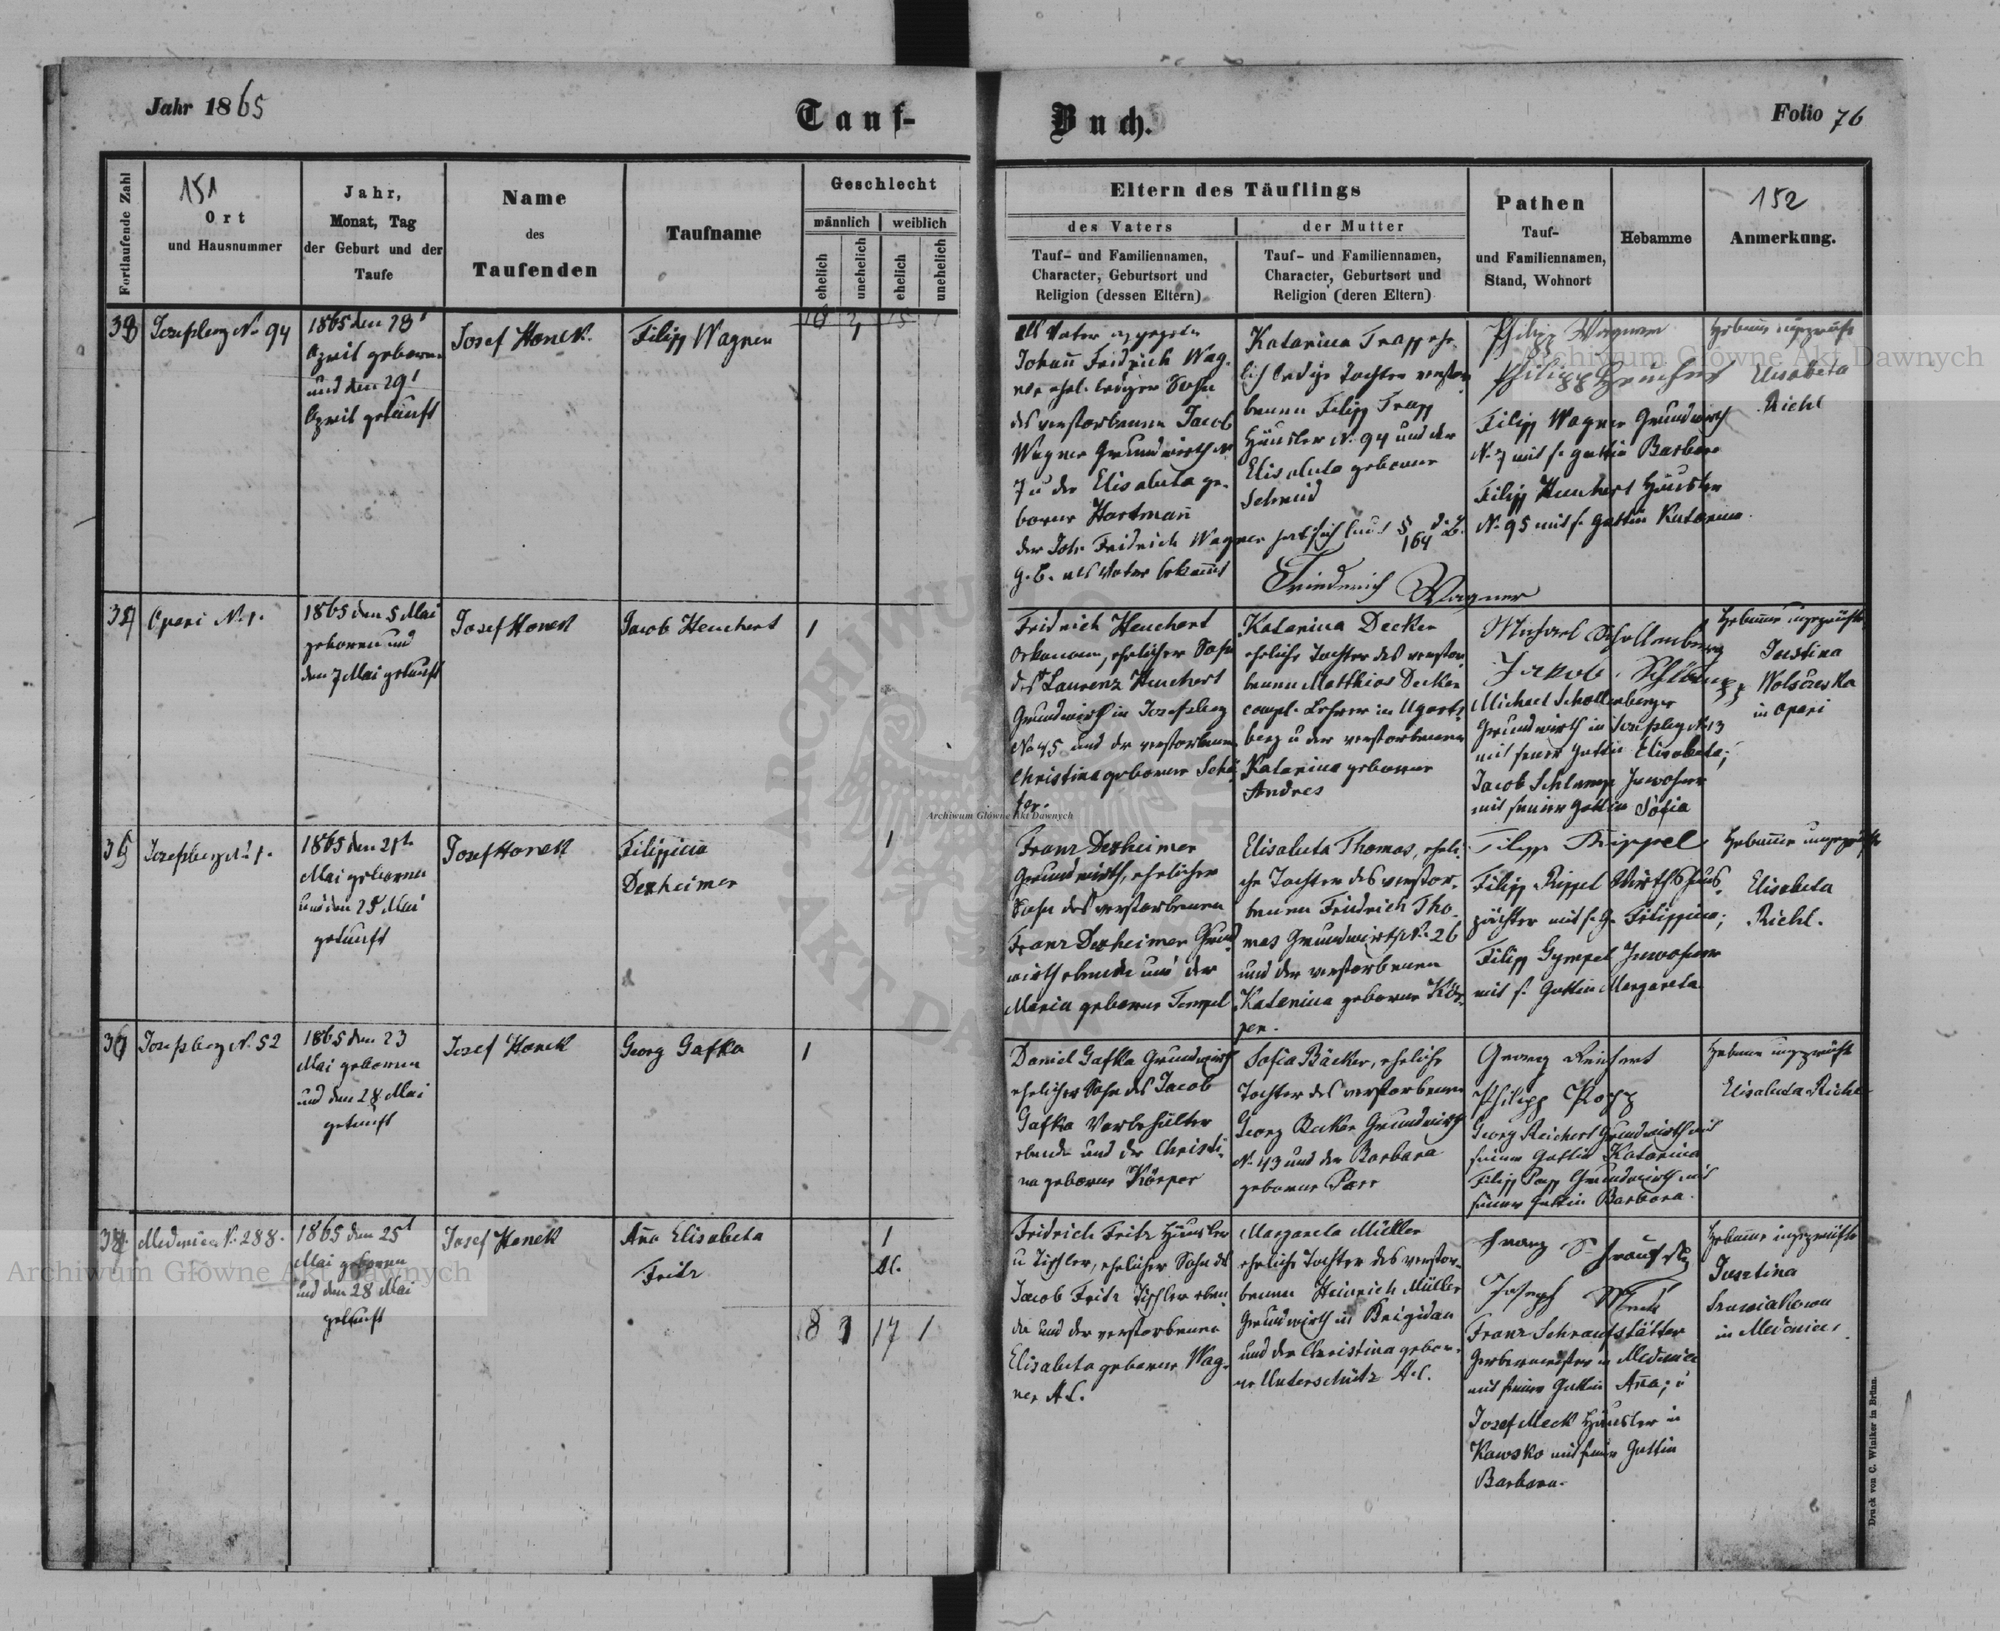 Jahr 1865
Tauf-
Buch.
Folio 76
Fortlaufende Zahl
151
Ort
und Hausnummer
Jahr,
Monat, Tag
der Geburt und der
Taufe
Name
des
Taufenden
Taufname
Geschlecht
männlich
weiblich
ehelich
unehelich
ehelich
unehelich
Eltern des Täuflings
des Vaters
der Mutter
Tauf- und Familiennamen,
Character, Geburtsort und
Religion (dessen Eltern)
Tauf- und Familiennamen,
Character, Geburtsort und
Religion (deren Eltern)
Pathen
Tauf-
und Familiennamen,
Stand, Wohnort
Hebamme
152
Anmerkung.
Josefsberg N. 94
1865 den
April geboren
und den 29t
April getauft
Josef Honek
Filipp Wagner
als Vater
Johann Fridrich Wag-
ner ehel. lediger Sohn
des verstorbenen Jacob
Wagner Grundwirth N
7 u der Elisabeta ge-
borne Hartmann
der Joh. Fridrich Wagner hat sich laut § 164 d. b.
g. B. als Vater bekannt
Katarina Trapp ehe-
lich ledige Tochter verstor-
benen Filipp Trapp
Häusler N. 94 und der
Elisabeta geborne
Schmid
Friederich Wagner
Philipp Wagner
Philipp Heuchert
Filipp Wagner Grundwirth
N. 7 mit s. Gattin Barbara
Filipp Heuchert Häusler
N. 95 mit s. Gattin Katarina
Hebamme ungeprüfte
Elisabeta
Riehl
Opari N. 1.
1865 den 5 Mai
geboren und
den 7 Mai getauft
Josef Honek
Jacob Heuchert
1
Fridrich Heuchert
Oekonom, ehelicher Sohn
des Laurenz Heuchert
Grundwirth in Josefsberg
N. 45 und der verstorbenen
Christina geborne Schä-
fer.
Katarina Decker
eheliche Tochter des verstor-
benen Matthias Decker
Lehrer in Ugarts-
berg u der verstorbenen
Katarina geborne
Andres
Michael Schollenberger
Jakob
Michael Schollenberger
Grundwirth in Josefsberg N. 13
mit seiner Gattin Elisabeta;
Jacob Inwohner
mit seiner Gattin Sofia
Hebamme ungeprüfte
Justina
in Opari
Josefsberg N. 1.
1865 den 21t
Mai geboren
und den 25 Mai
getauft
Josef Honek
Filippina
Dexheimer
1
Franz Dexheimer
Grundwirth, ehelicher
Sohn des verstorbenen
Franz Dexheimer Grund-
wirth ebenda und der
Maria geborne
Elisabeta Thomas, eheli-
che Tochter des verstor-
benen Fridrich Tho-
mas Grundwirth N. 26
und der verstorbenen
Katarina geborne Kör-
per.
Filipp Rippel
Filipp Rippel Wirthshaus-
pächter mit s. G. Filippina;
Filipp Gympel Inwohner
mit s. Gattin Margareta
Hebamme ungeprüfte
Elisabeta
Riehl.
Josefsberg N. 52
1865 den 23
Mai geboren
und den 28 Mai
getauft
Josef Honek
Georg Gafka
1
Daniel Gafka Grundwirth
ehelicher Sohn des Jacob
Gafka Vorbehälter
ebenda und der Christi-
na geborne Körper
Sofia Bäcker, eheliche
Tochter des verstorbenen
Georg Becker Grundwirth
N. 43 und der Barbara
geborne Parr
Georg Reichert
Philipp Popp
Georg Reichert Grundwirth mit
seiner Gattin Katarina
Filipp Popp Grundwirth mit
seiner Gattin Barbara.
Hebamme ungeprüfte
Elisabeta Riehl
Medenice N. 288.
1865 den 25t
Mai geboren
und den 28 Mai
getauft
Josef Honek
Ana Elisabeta
Fritz
1
AC.
18 3 17 1
Fridrich Fritz Häusler
u Tischler, ehelicher Sohn des
Jacob Fritz Tischler eben-
da und der verstorbenen
Elisabeta geborne Wag-
ner AC.
Margareta Müller
eheliche Tochter des verstor-
benen Heinrich Müller
Grundwirth in Brigidau
und der Christina gebor-
ne Unterschütz AC.
Franz
Joseph Meck
Franz Schraufstätter
Gerbermeister in Medenice
mit seiner Gattin Ana; u
Josef Meck Häusler in
Kawsko mit seiner Gattin
Barbara.
Hebamme ungeprüfte
Justina
in Medenice.
Druck von C. Winiker in Brünn.
Archiwum Główne Akt Dawnych
Archiwum Główne Akt Dawnych
Archiwum Główne Akt Dawnych
ARCHIWUM
AKT DAWNYCH